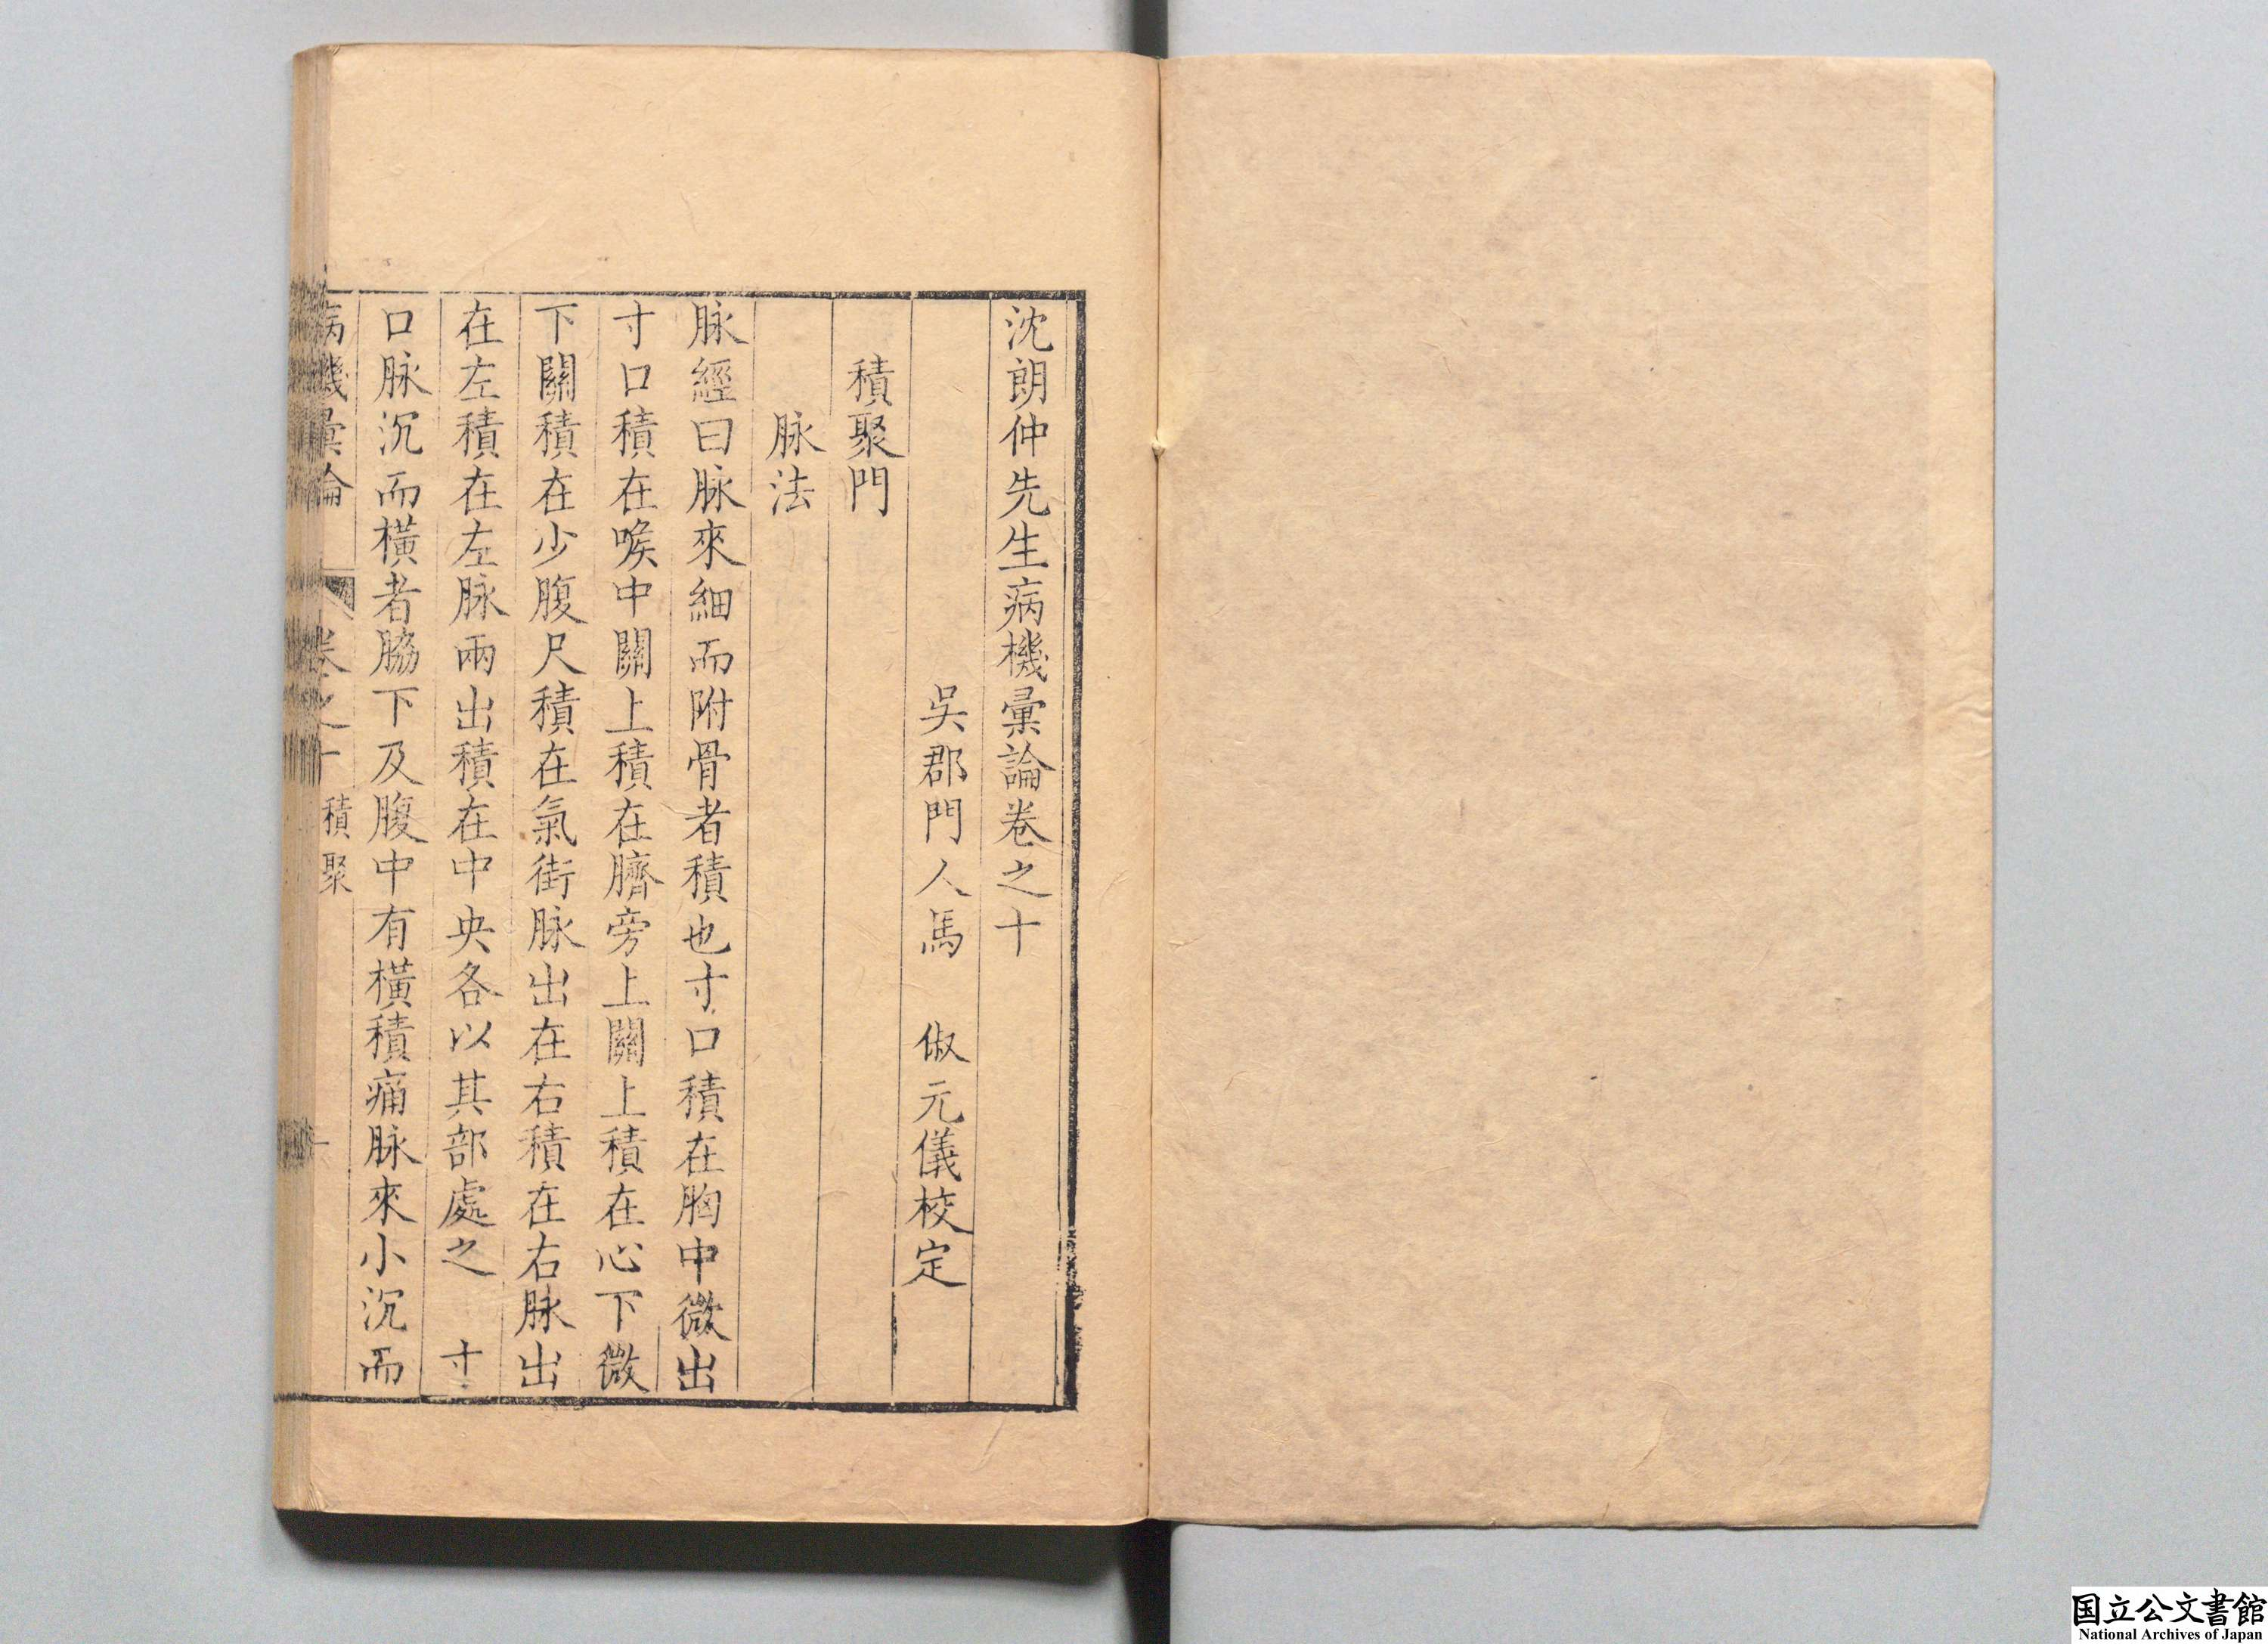 沈朗仲先生病機彙論卷之十
吳郡門人馬　俶元儀校定
積聚門
脉法
脉經曰脉來細而附骨者積也寸口積在胸中微出
寸口積在喉中關上積在臍旁上關上積在心下微
下關積在少腹尺積在氣街脉出在右積在右脉出
在左積在左脉兩出積在中央各以其部處之　寸
口脉沉而橫者脇下及腹中有橫積痛脉來小沉而
病機彙論　卷之十　積聚　一
国立公文書館
National Archives of Japan